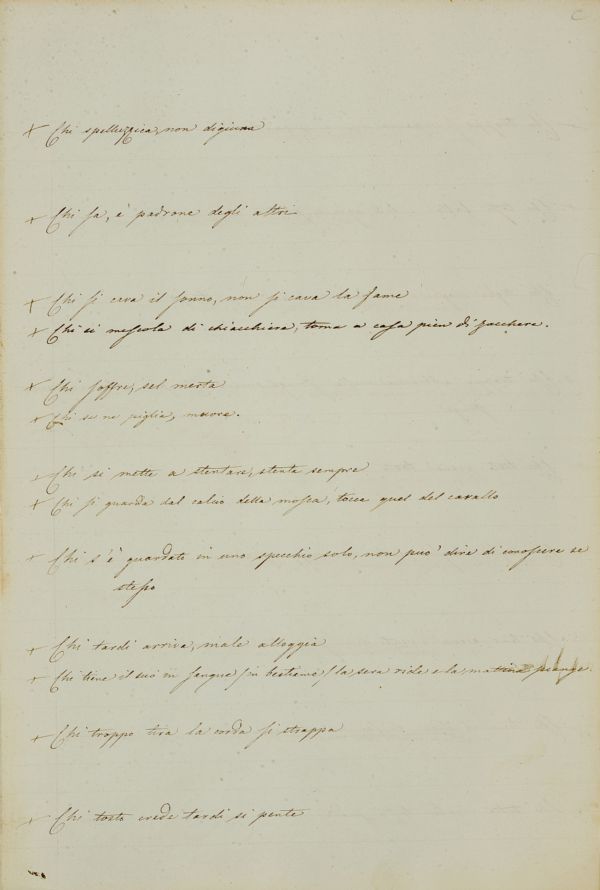 C
+ Chi spelluzzica, non digiuna
+ Chi sa, è padrone degli altri
+ Chi si cava il sonno, non si cava la fame
+ Chi si mescola di chiacchiera, torna a casa pien di zacchere.
+ Chi soffre, sel merta
+ Chi se ne piglia, muore.
+ Chi si mette a stentare, stenta sempre
+ Chi si guarda dal calcio della mosca, tocca quel del cavallo
+ Chi s'è guardato in uno specchio solo, non può dire di conoscere se
stesso
+ Chi tardi arriva, male alloggia
+ Chi tiene il suo in sangue (in bestiame) la sera ride e la mattina piange.
+ Chi troppo tira la corda si strappa
+ Chi tosto crede tardi si pente